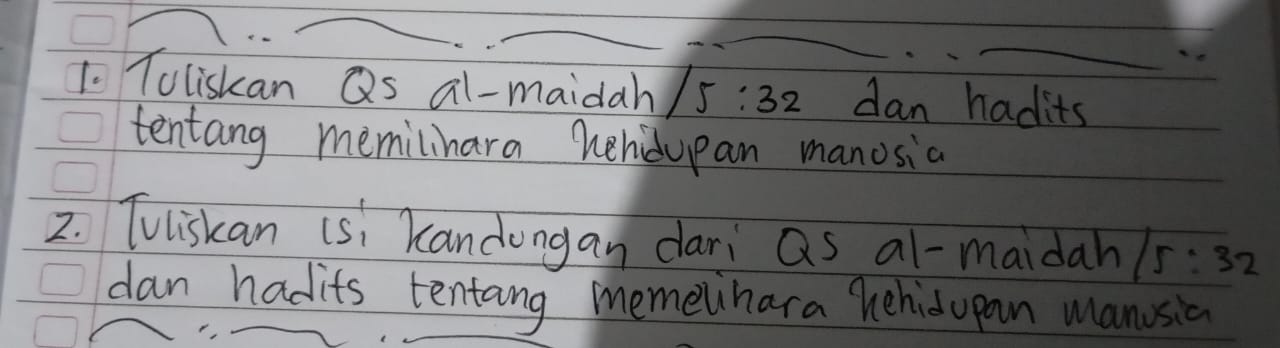 1. Tuliskan QS al-maidah/5:32 dan hadits
tentang memilihara kehidupan manusia
2. Tuliskan isi kandungan dari QS al-maidah/5:32
dan hadits tentang memelihara kehidupan manusia